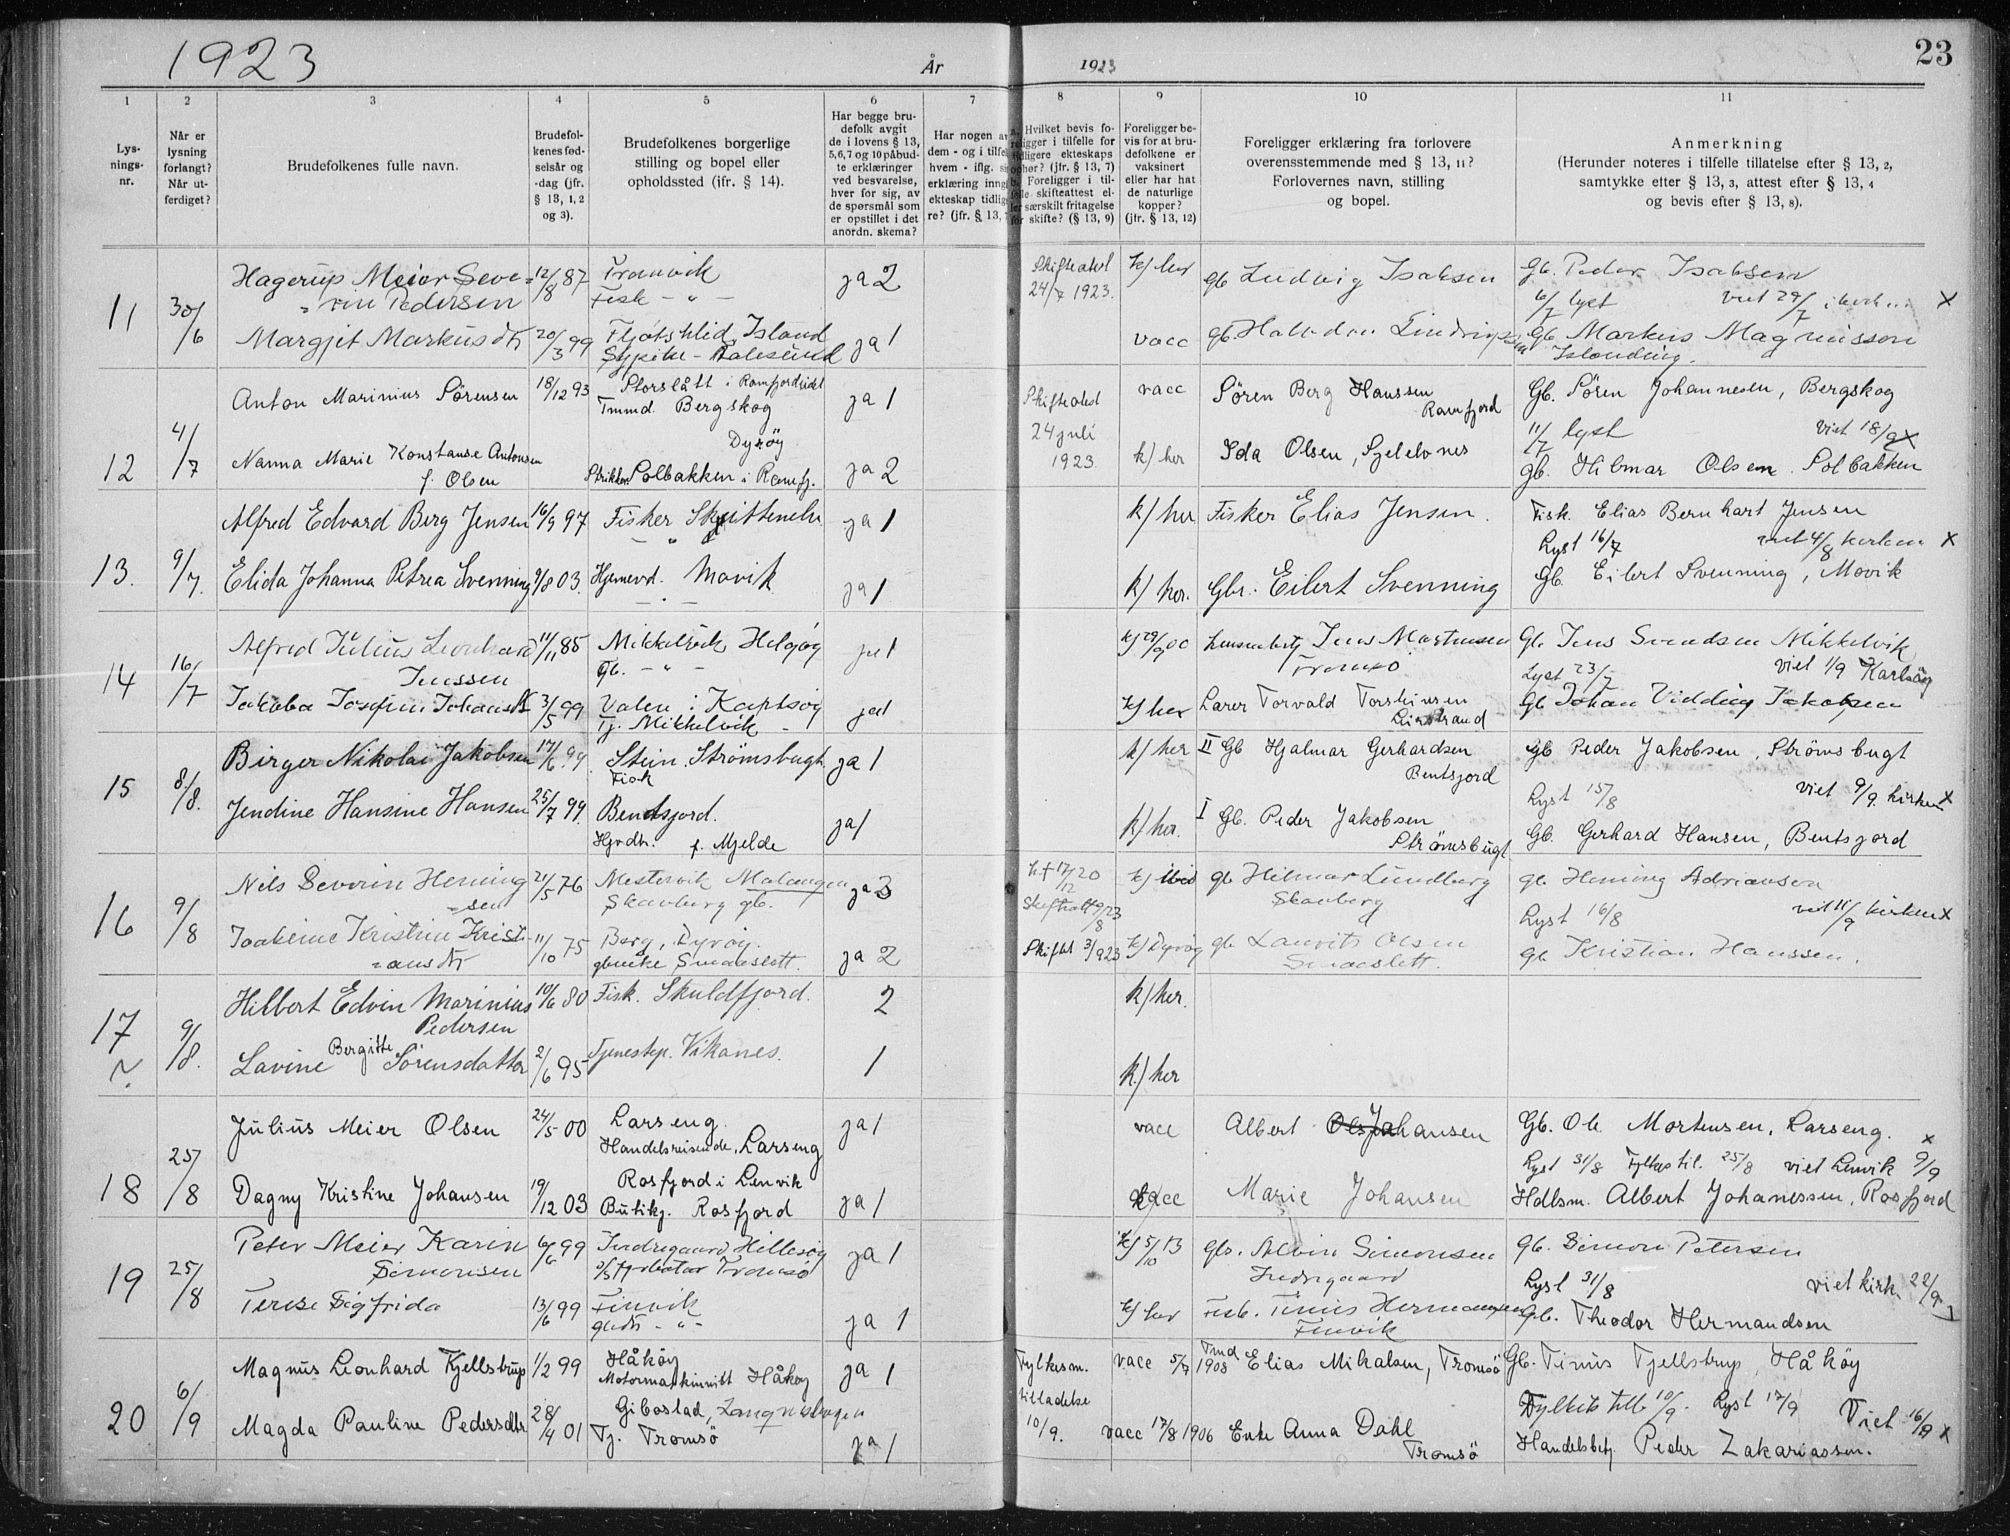 1923
År
1923
23
1
2
3
4
5
6
7
8
9
10
11
Lys-
nings-
nr.
Når er
lysning
forlangt?
Når ut-
ferdiget?
Brudefolkenes fulle navn.
Brudefol-
kenes fød-
selsår og
-dag (jfr.
§ 13, 1, 2
og 3).
Brudefolkenes borgerlige
stilling og bopel eller
opholdssted (jfr. § 14).
Har begge bru-
defolk avgit
de i lovens § 13,
5, 6, 7 og 10 påbud-
te erklæringer
ved besvarelse,
hver for sig, av
de spørsmål som
er opstillet i det
anordn. skema?
Har nogen av
dem - og i tilfel
hvem - iflg.
erklæring inngå
ekteskap tidlig
re? (jfr. § 13, 7
Hvilket bevis fo-
religger i tilfelle for
tidligere ekteskaps
ophør? (jfr. § 13, 7)
Foreligger i til-
felle skifteattest el-
ler særskilt fritagelse
for skifte? (§ 13, 9)
Foreligger be-
vis for at bru-
defolkene er
vaksinert
eller har hat
de naturlige
kopper?
(jfr. § 13, 12)
Foreligger erklæring fra forlovere
overensstemmende med § 13, 11?
Forlovernes navn, stilling
og bopel.
Anmerkning
(Herunder noteres i tilfelle tillatelse efter § 13, 2,
samtykke etter § 13, 3, attest efter § 13, 4
og bevis efter § 13, 8).
11
30/6
Hagerup Meier Seve-
rin Pedersen
12/8 87
Fisk - " -
ja 2
Skifteatest
24/7 1923.
k/ her
gb Ludvig Isaksen
Gb. Peder Isaksen
6/7 lyst viet 29/7 X
Margjit Markusdtr
20/3 99
Island
Aalesund
ja 1
vacc
Gb. Markus Magnusson
Islending.
12
4/7
Anton Marinius Sørensen
18/12 93
Storslått i Ramfjordeidet
Tmmd. Bergskog
ja 1
Skifteatest
24 juli
1923.
vacc
Søren Berg Hanssen
Ramfjord
Gb. Sören Johannesen, Bergskog
11/7 lyst viet 18/9 X
Nanna Marie Konstanse Antonsen
f. Olsen
Dyrøy
Solbakken i Ramfj.
ja 2
k/ her
Ida Olsen, Sjelvnes
gb. Hilmar Olsen Solbakken
13.
9/7.
Alfred Edvard Berg Jensen
16/9 97
Fisker Skittenelv
- " -
ja 1
k/ her
Fisker Elias Jensen.
Fisk. Elias Bernhart Jensen
Lyst 16/7 viet 4/8 kirken X
Elida Johanna Petrea Svenning
9/8 03.
Hjemevd. Movik
- " -
ja 1
k/ her.
Gbr. Eilert Svenning
Gb. Eilert Svenning, Movik
14
16/7
Alfred Julius Leonhard
Jenssen
11/11 85
Mikkelvik Helgøy
Gb. - " -
ja 1
k/ 29/9 00
Jens Mortensen
Tromsö
Gb Jens Svendsen Mikkelvik
Lyst 23/7 viet 1/9 Karlsöy
Jakoba Josefine Johansdtr
3/5 99
Valen i Karlsøy
Tj. Mikkelvik -
ja 1
k/ her
Lærer Torvald Torsteinsen
Gb Johan Vidding Jakobsen
15
8/8.
Birger Nikolai Jakobsen
17/6. 99
Stein. Strömsbugt
Fisk
ja 1
k/ her
II Gb Hjalmar Gerhardsen
Bentsjord
Gb Peder Jakobsen, Strömsbugt
Lyst 15/8 viet 9/9. kirken X
Jendine Hansine Hansen
25/7 99.
Bentsjord.
Hjvdtr. f. Mjelde
ja 1
k/ her.
I Gb. Peder Jakobsen
Strömsbugt
Gb. Gerhard Hansen, Bentsjord
16
9/8
Nils Severin Hening
-sen
21/5 76
Mestervik Malangen
Skavberg gb.
ja 3
k † 17/12 20
Skifteatt 9/8 23
k/ ibid
gb Hilmar Lundberg
Skavberg
gb. Hening Adriansen
Lyst 16/8 viet 11/9 kirken X
Joakime Kristine Kristi-
ansdtr
11/10 75
Berg, Dyrøy.
gbenke Smaaslett.
ja 2
Skiftat 3/9 23
k/ Dyrøy
gb Laurits Olsen
Smaaslett.
gb Kristian Hanssen.
17
9/8.
Hilbert Edvin Marinius
Pedersen
10/6 80
Fisk. Skuldfjord.
2
k/ her.
Lavine Bergitte Sörensdatter
2/6 95
Tjenestep. Vikanes.
1
k/ her
18
25/8
Julius Meier Olsen
24/5 00
Larseng.
Handelsreisende, Larseng
ja 1
vacc
Albert Johansen
Gb. Ole Mortensen, Larseng. X
Lyst 31/8 Fylkes til. 25/8 viet Lenvik 9/9
Dagny Kristine Johansen
19/12 03
Rosfjord i Lenvik
Butikj. Rosfjord
ja 1
vacc
Marie Johansen
Hdlsm. Albert Johanessen, Rosfjord
19
25/8
Peter Meier Karin
Simonsen
6/6 99
Indregaard Hillesøy
Tromsø
ja 1
k/ 5/10 13
gb. Alvin Simonsen
Indregaard
gb. Simon Petersen
Lyst 31/8 viet kirk. 22/9
Terese Sigfrida
13/6 99
Finvik
gbdtr - " -
ja 1
k/ her
Fisk. Tinius Hermansen
Finvik
Gb. Theodor Hermandsen
20
6/9
Magnus Leonhard Kjellstrup
1/2 99
Håköy
Motormaskinist Håköy
ja 1
Fylkesm.
tilladelse
10/9.
vacc 5/7 1908
Tmd Elias Mikalsen, Tromsö
Gb. Tinus Fjellstrup, Håköy
Fylkets till. 10/9. Lyst 17/9 Viet 16/9 X
Magda Pauline Pedersdtr
28/4 01
Gibostad,
Tj. Tromsö
ja 1
vacc 17/8 1906
Enke Anna Dahl
Tromsö
Handelsbetj. Peder Zakariassen.